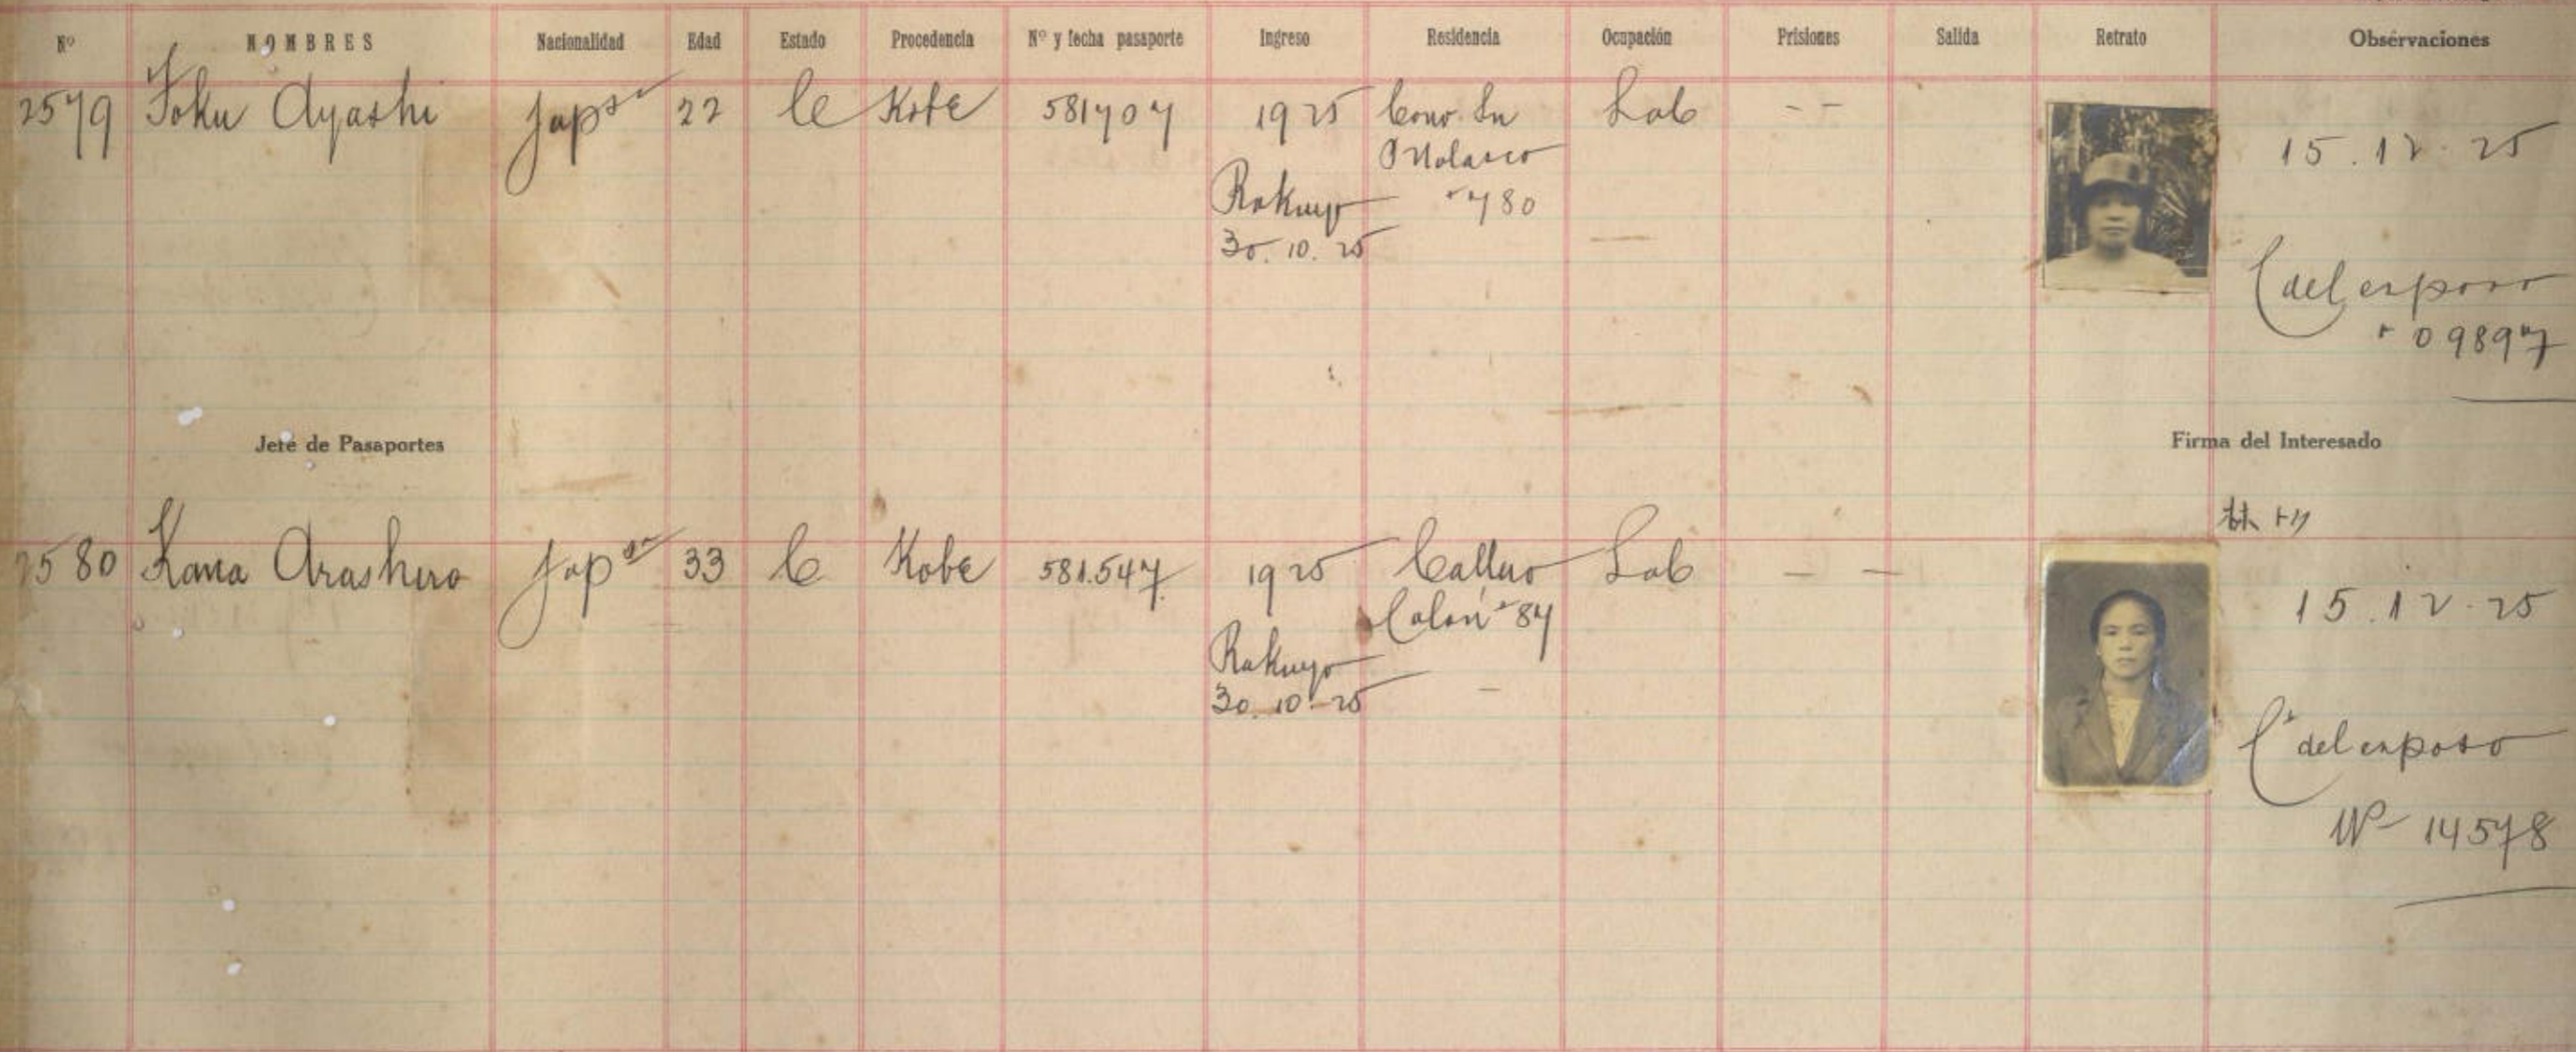 Nº NOMBRES Nacionalidad Edad Estado Procedencia Nº y fecha pasaporte Ingreso Residencia Ocupación Prisiones Salida Retrato Observaciones
2579 Toku Ayashi Japsa 22 C Kobe 581707 1925 Lab - -
Rokuyo
30.10.25
780
15.12.25
C del esposo
09897
Jefe de Pasaportes
Firma del Interesado
林 トク
2580 Kana Arashiro Japsa 33 C Kobe 581.547 1925 Callao Lab - -
Colón 87
Rakuyo
30.10.25
15.12.25
C del esposo
Nº 14578